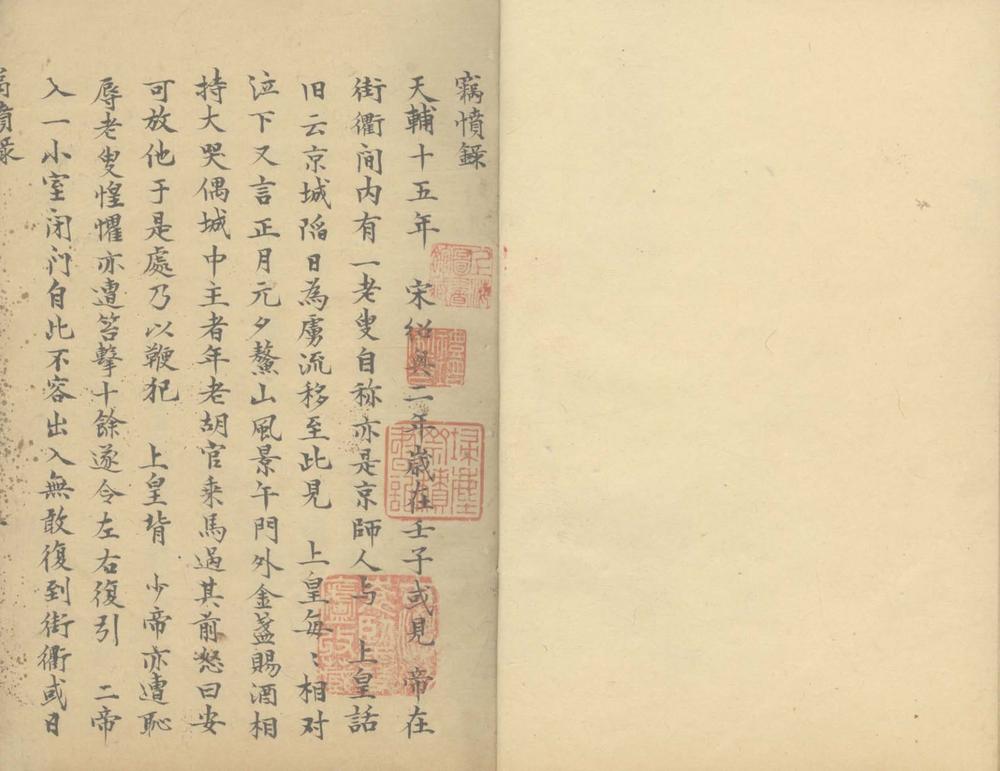 竊憤錄
天輔十五年　宋紹興二年歲在壬子或見　帝在
街衢间内有一老叟自称亦是京師人与　上皇話
旧云京城陷日為虜流移至此見　上皇每〻相对
泣下又言正月元夕鰲山風景午門外金盞賜酒相
持大哭偶城中主者年老胡官乘馬過其前怒曰安
可放他于是處乃以鞭犯　上皇背　少帝亦遭恥
辱老叟惶懼亦遭笞擊十餘遂令左右復引　二帝
入一小室闭门自此不容出入無敢復到街衢或日